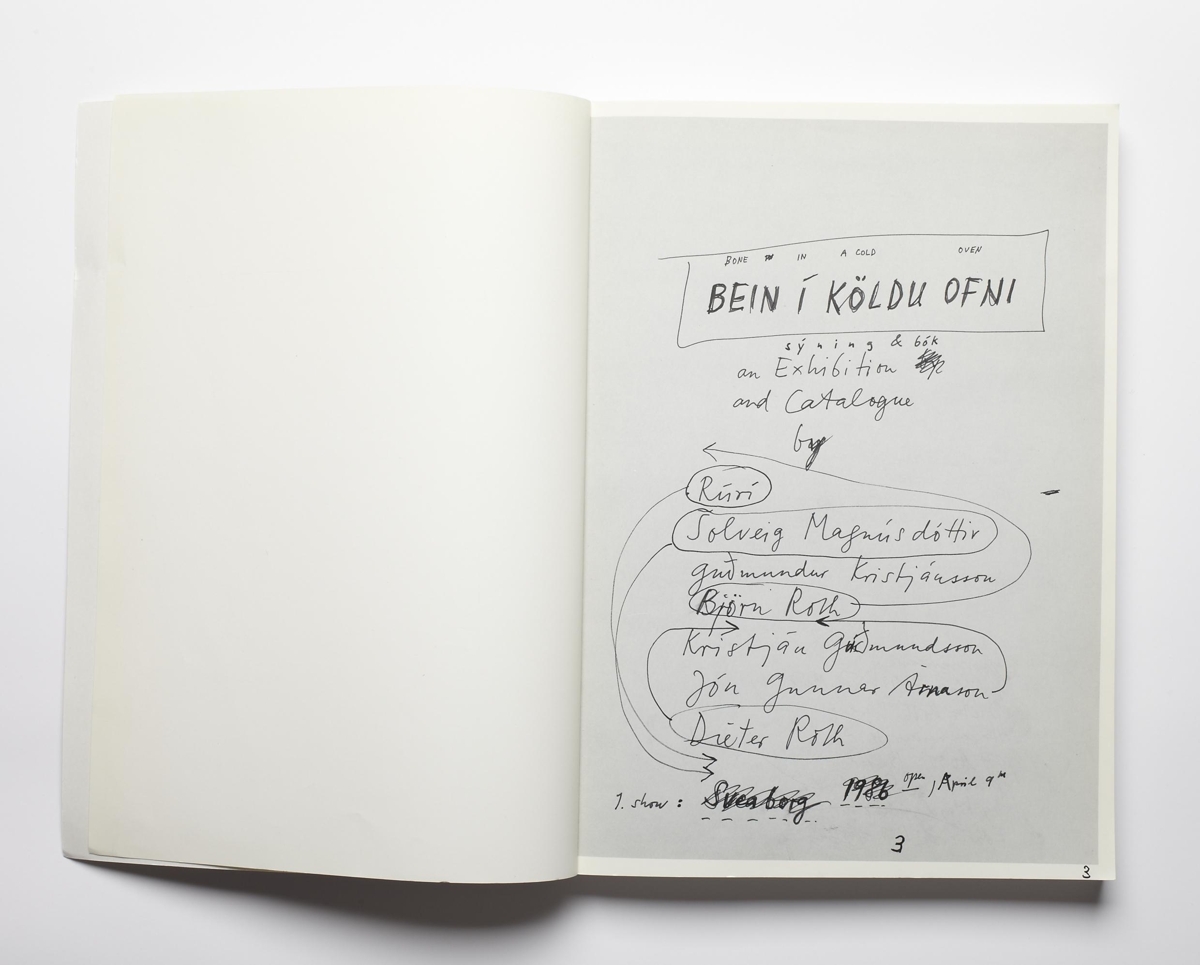 BONE IN A COLD OVEN
BEIN Í KÖLDU OFNI
sýning & bók
an Exhibition
and Catalogue
by
Rúrí
Solveig Magnúsdóttir
guðmundur Kristjánsson
Björn Roth
Kristján Guðmundsson
Jón Gunnar Árnason
Dieter Roth
1. show: Sveaborg 1986 open, April 9th
3
3